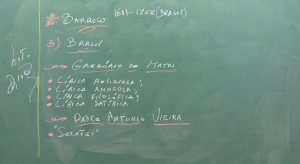 # BARROCO 1601-1768 (BRASIL)
3) BRASIL
GREGÓRIO DE MATOS
• LÍRICA RELIGIOSA;
• LÍRICA AMOROSA;
• LÍRICA FILOSÓFICA;
• LÍRICA SATÍRICA
PADRE ANTONIO VIEIRA
• SERMÕES